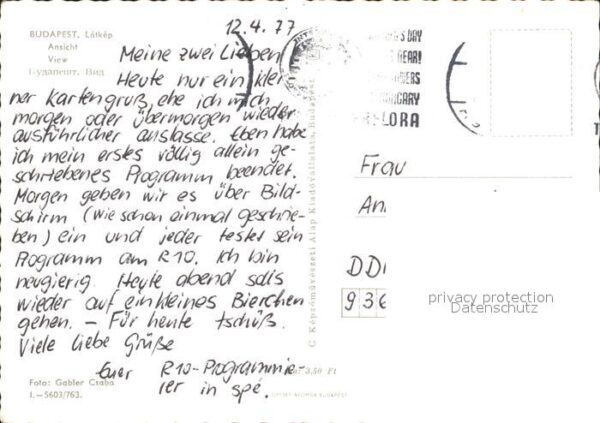 12.4.77
BUDAPEST, Látkép
Ansicht
View
Будапешт. Вид
Meine zwei Lieben
Heute nur ein klei-
ner Kartengruß, ehe ich mich
morgen oder übermorgen wieder
ausführlicher auslasse. Eben habe
ich mein erstes völlig allein ge-
schriebenes Programm beendet.
Morgen geben wir es über Bild-
schirm (wie schon einmal geschrie-
ben) ein und jeder testet sein
Programm am R10. Ich bin
neugierig. Heute abend solls
wieder auf ein kleines Bierchen
gehen. – Für heute tschüß.
Viele liebe Grüße
Euer R10-Programmie-
rer in spé.
Foto: Gabler Csaba
I.—5603/763.
3,50 Ft
C Képzőművészeti Alap Kiadóvállalata, Budapest
'S DAY
GEAR!
GARY
LORA
Frau
An
DD
936
privacy protection
Datenschutz